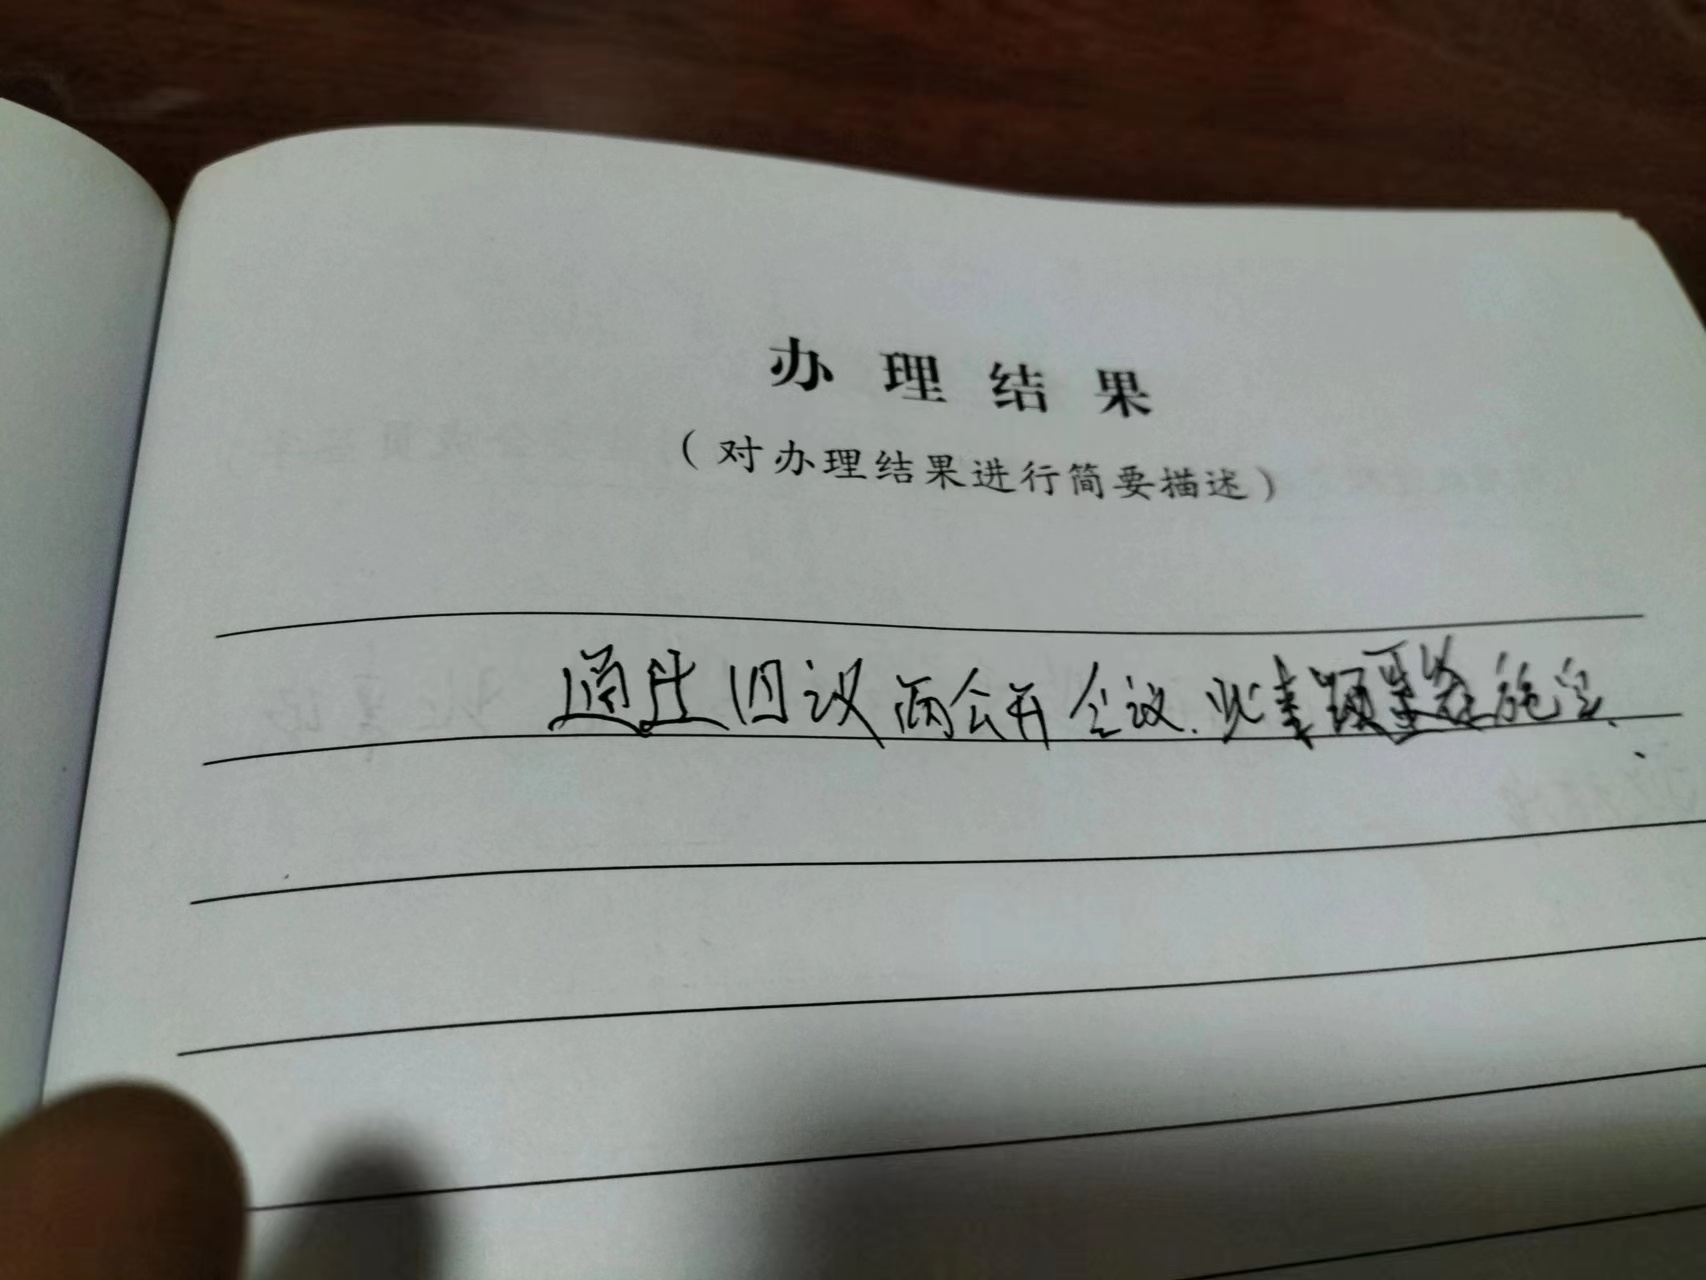 办理结果
（对办理结果进行简要描述）
通过四议两公开会议.此事项